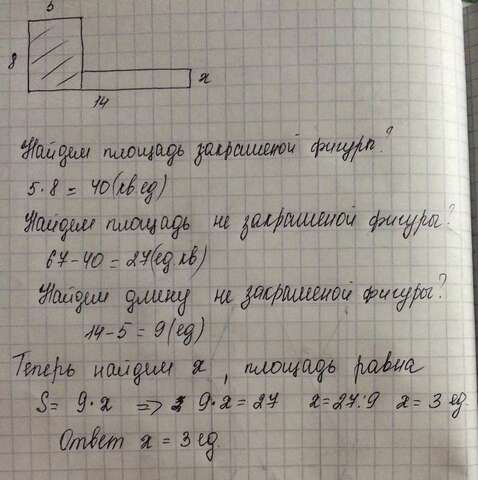 5
8
x
14
Найдем площадь закрашеной фигуры?
5·8 = 40(кв ед)
Найдем площадь не закрашеной фигуры?
67-40 = 27(ед кв)
Найдем длину не закрашеной фигуры?
14-5 = 9(ед)
Теперь найдем x, площадь равна
S = 9·x => 9·x = 27 x=27:9 x = 3 ед.
Ответ x = 3 ед.